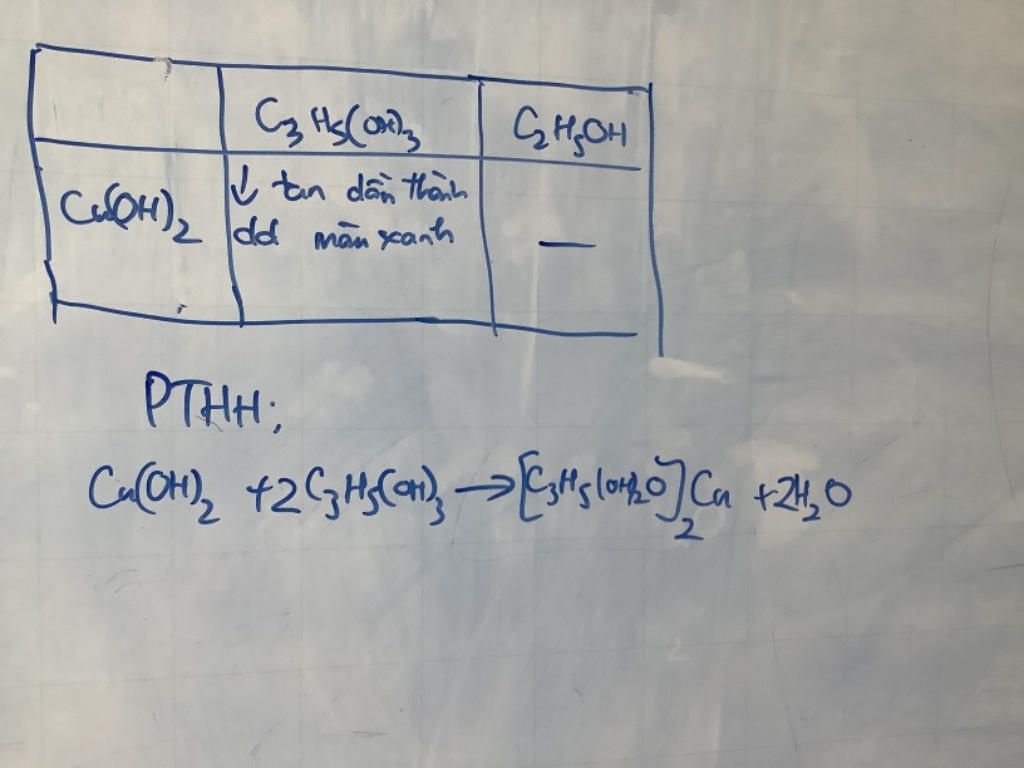 C₃H₅(OH)₃ C₂H₅OH
Cu(OH)₂ ↓ tan dần thành —
dd màu xanh
PTHH:
Cu(OH)₂ + 2C₃H₅(OH)₃ → [C₃H₅(OH)₂O]₂Cu + 2H₂O